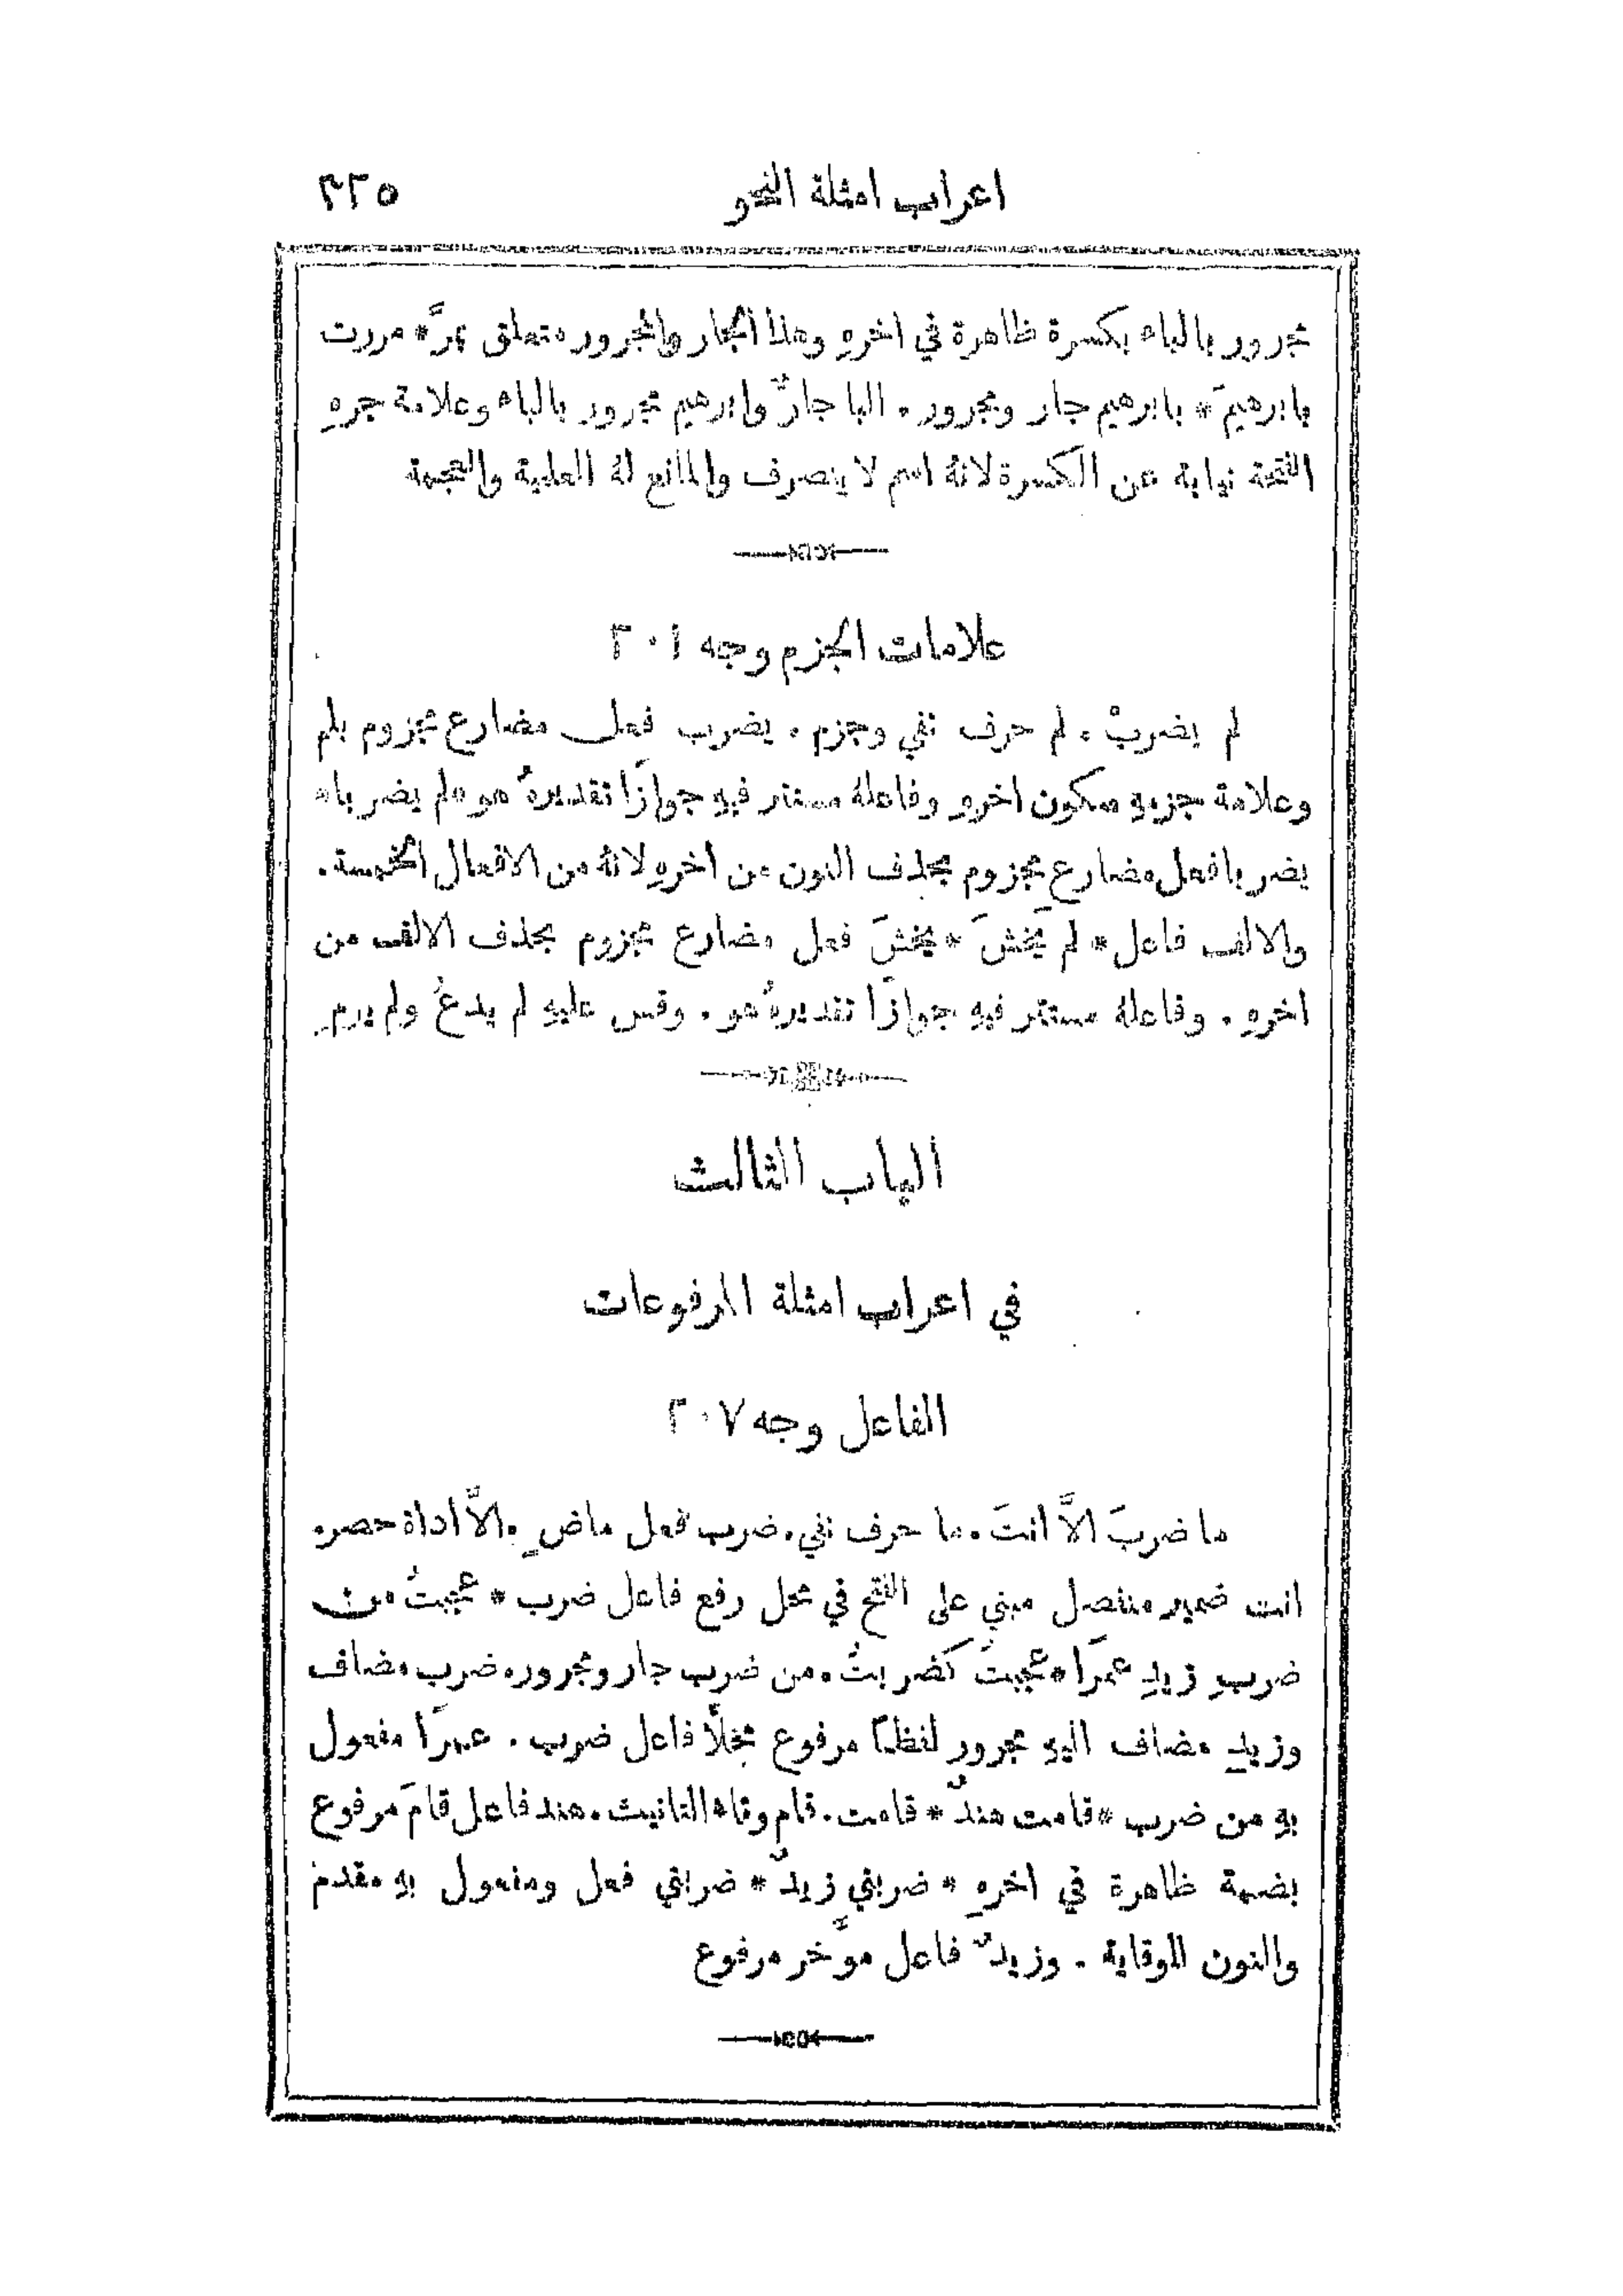 اعراب امثلة النحو ٣٣٥
مجرور بالباء بكسرة ظاهرة في اخرهِ وهذا الجار والمجرور متعلق بمرَّ * مررت
بابرهيمَ * بابرهيم جار ومجرور. البا جارٌّ وابرهيم مجرور بالباء وعلامة جرهِ
الفتحة نيابة عن الكسرة لانهُ اسم لا ينصرف والمانع لهُ العلمية والعجمة
علامات الجزم وجه ٢٠١
لم يضربْ. لم حرف نفي وجزم. يضرب فعل مضارع مجزوم بلم
وعلامة جزمهِ سكون اخرهِ وفاعلهُ مستتر فيهِ جوازًا تقديرهُ هو * لم يضربا *
يضربا فعل مضارع مجزوم بحذف النون من اخرهِ لانهُ من الافعال الخمسة.
والالف فاعل * لم يَخشَ * يخشَ فعل مضارع مجزوم بحذف الالف من
اخرهِ. وفاعلهُ مستتر فيهِ جوازًا تقديرهُ هو. وقس عليهِ لم يدعُ ولم يرمِ
الباب الثالث
في اعراب امثلة المرفوعات
الفاعل وجه ٢٠٧
ما ضربَ الاَّ انتَ. ما حرف نفي. ضرب فعل ماضٍ. الاَّ اداة حصر.
انت ضمير منفصل مبني على الفتح في محل رفع فاعل ضرب * عجبتُ من
ضربِ زيدٍ عمرًا * عجبتُ كضربتُ. من ضرب جار ومجرور. ضرب مضاف
وزيدٍ مضاف اليهِ مجرور لفظًا مرفوع محلًّا فاعل ضرب. عمرًا مفعول
بهِ من ضرب * قامت هندٌ * قامت. قام وتاء التانيث. هند فاعل قامَ مرفوع
بضمة ظاهرة في اخرهِ * ضربني زيدٌ * ضربني فعل ومفعول بهِ مقدم
والنون للوقاية. وزيدٌ فاعل موَّخر مرفوع